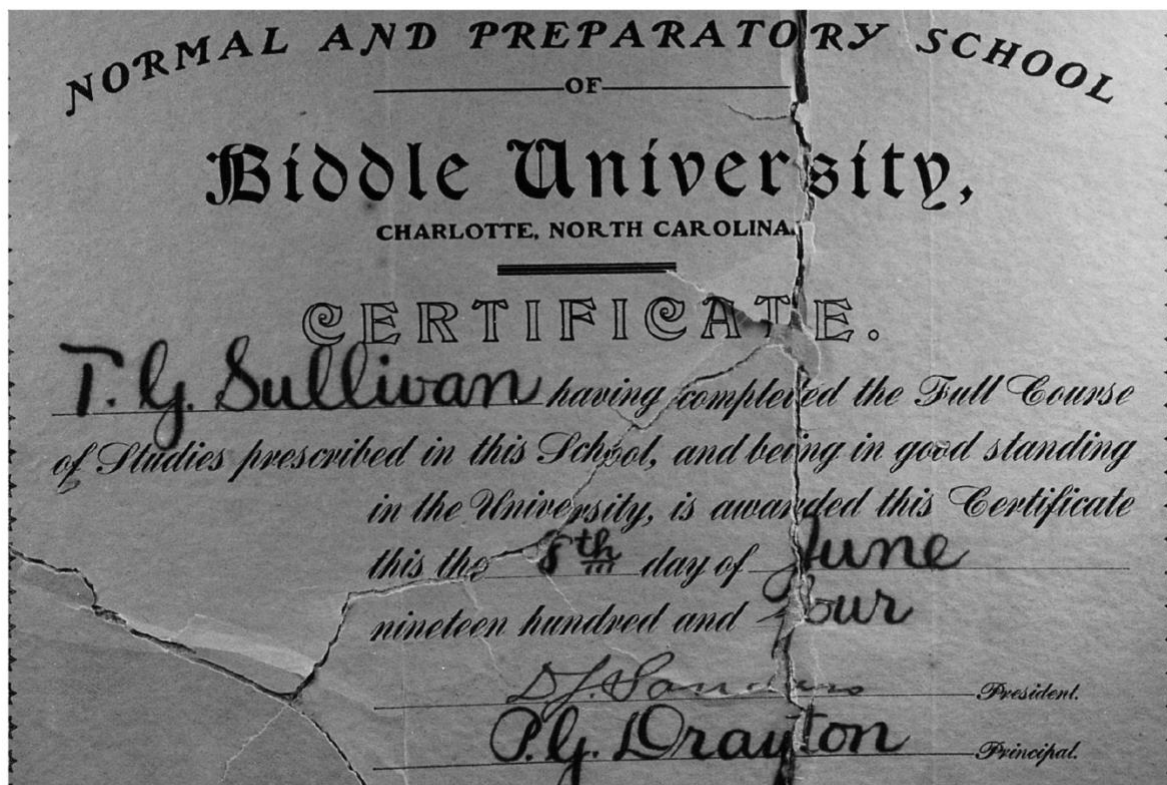 NORMAL AND PREPARATORY SCHOOL
OF
Biddle University,
CHARLOTTE, NORTH CAROLINA.
CERTIFICATE.
T. G. Sullivan having completed the Full Course
of Studies prescribed in this School, and being in good standing
in the University, is awarded this Certificate
this the 8th day of June
nineteen hundred and four
D. J. Sanders President.
P. G. Drayton Principal.